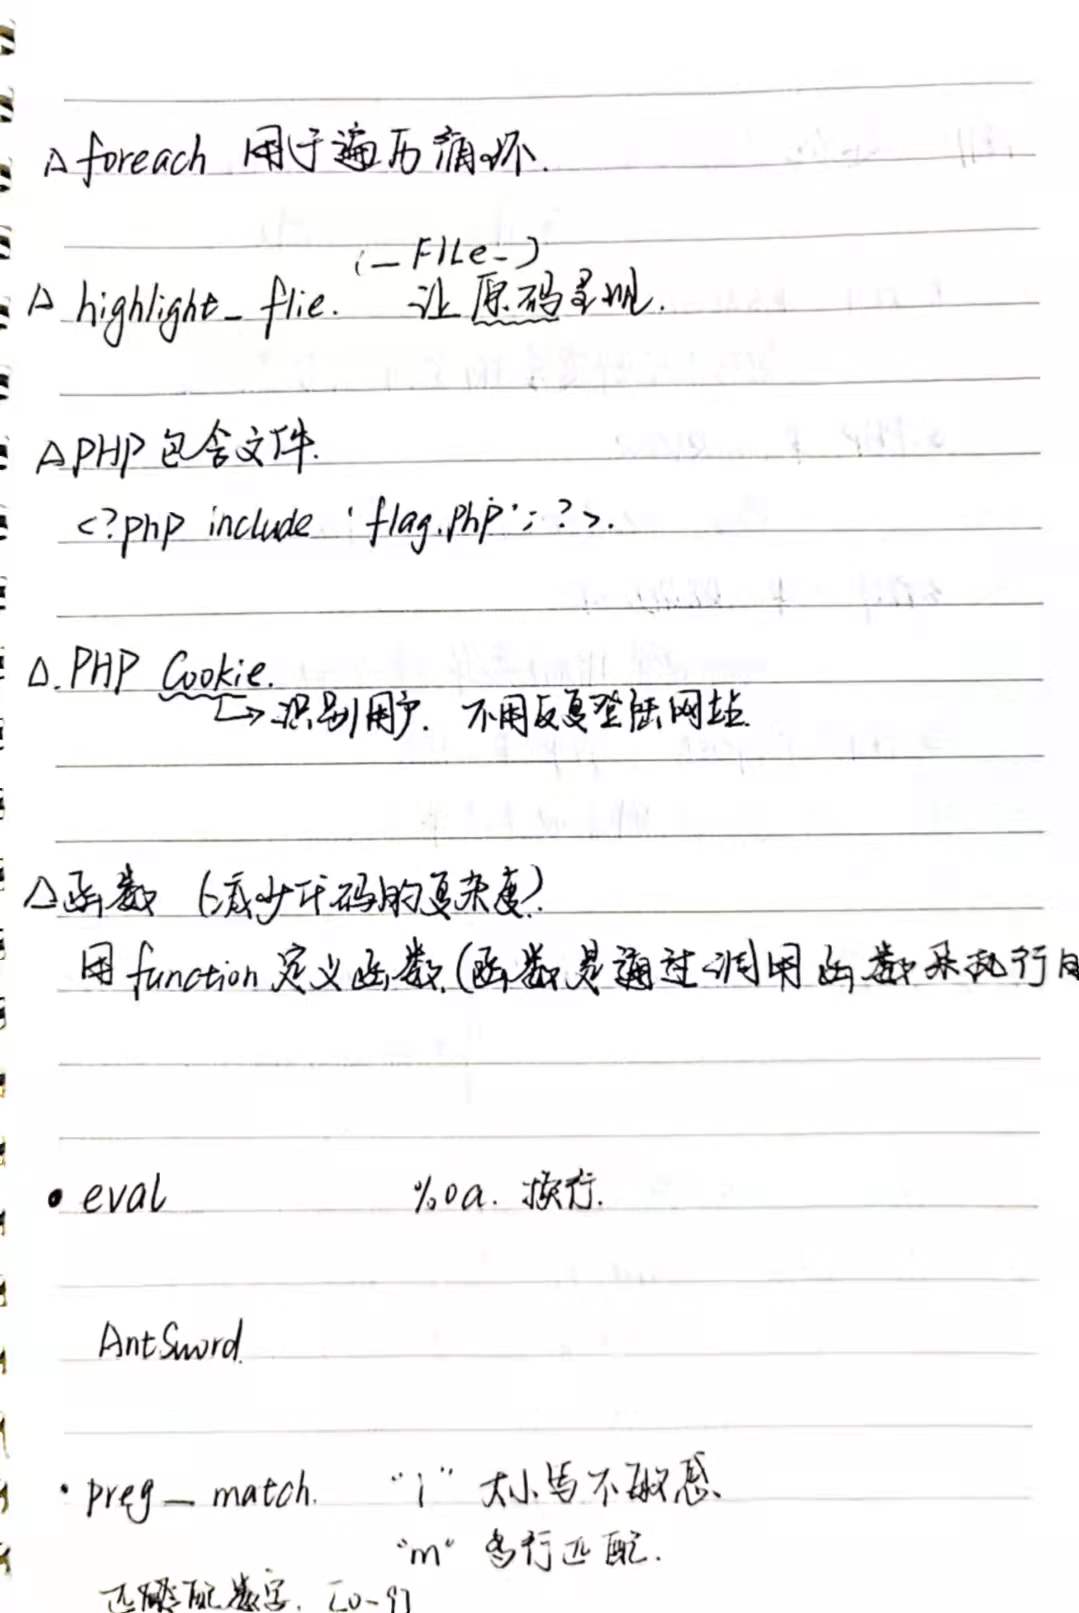 △ foreach 用于遍历循环.
(_FILe_)
△ highlight_flie. 让原码呈现.
△ PHP 包含文件.
<?php include 'flag.php';?>.
△. PHP Cookie.
↳ 识别用户. 不用反复登陆网站.
△ 函数 (减少代码的复杂度).
用 function 定义函数.(函数是通过调用函数来执行的
• eval %0a. 换行.
AntSword.
• preg_match. "i" 大小写不敏感、
"m" 多行匹配.
匹配数字. [0-9]